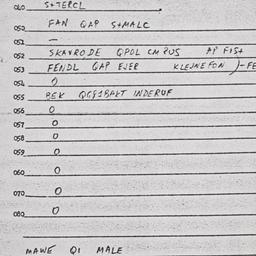 040 S+TERCL
050 FAN QAP S+MALC
051 —
052 SKAVRODE QPOL CMPUS AP FIST
053 FENDL QAP EJER KLEJNEFON )-FE
054 0
055 BEK INDERUF
056 0
057 0
058 0
059 0
060 0
070 0
080 0
MAWE QI MALE